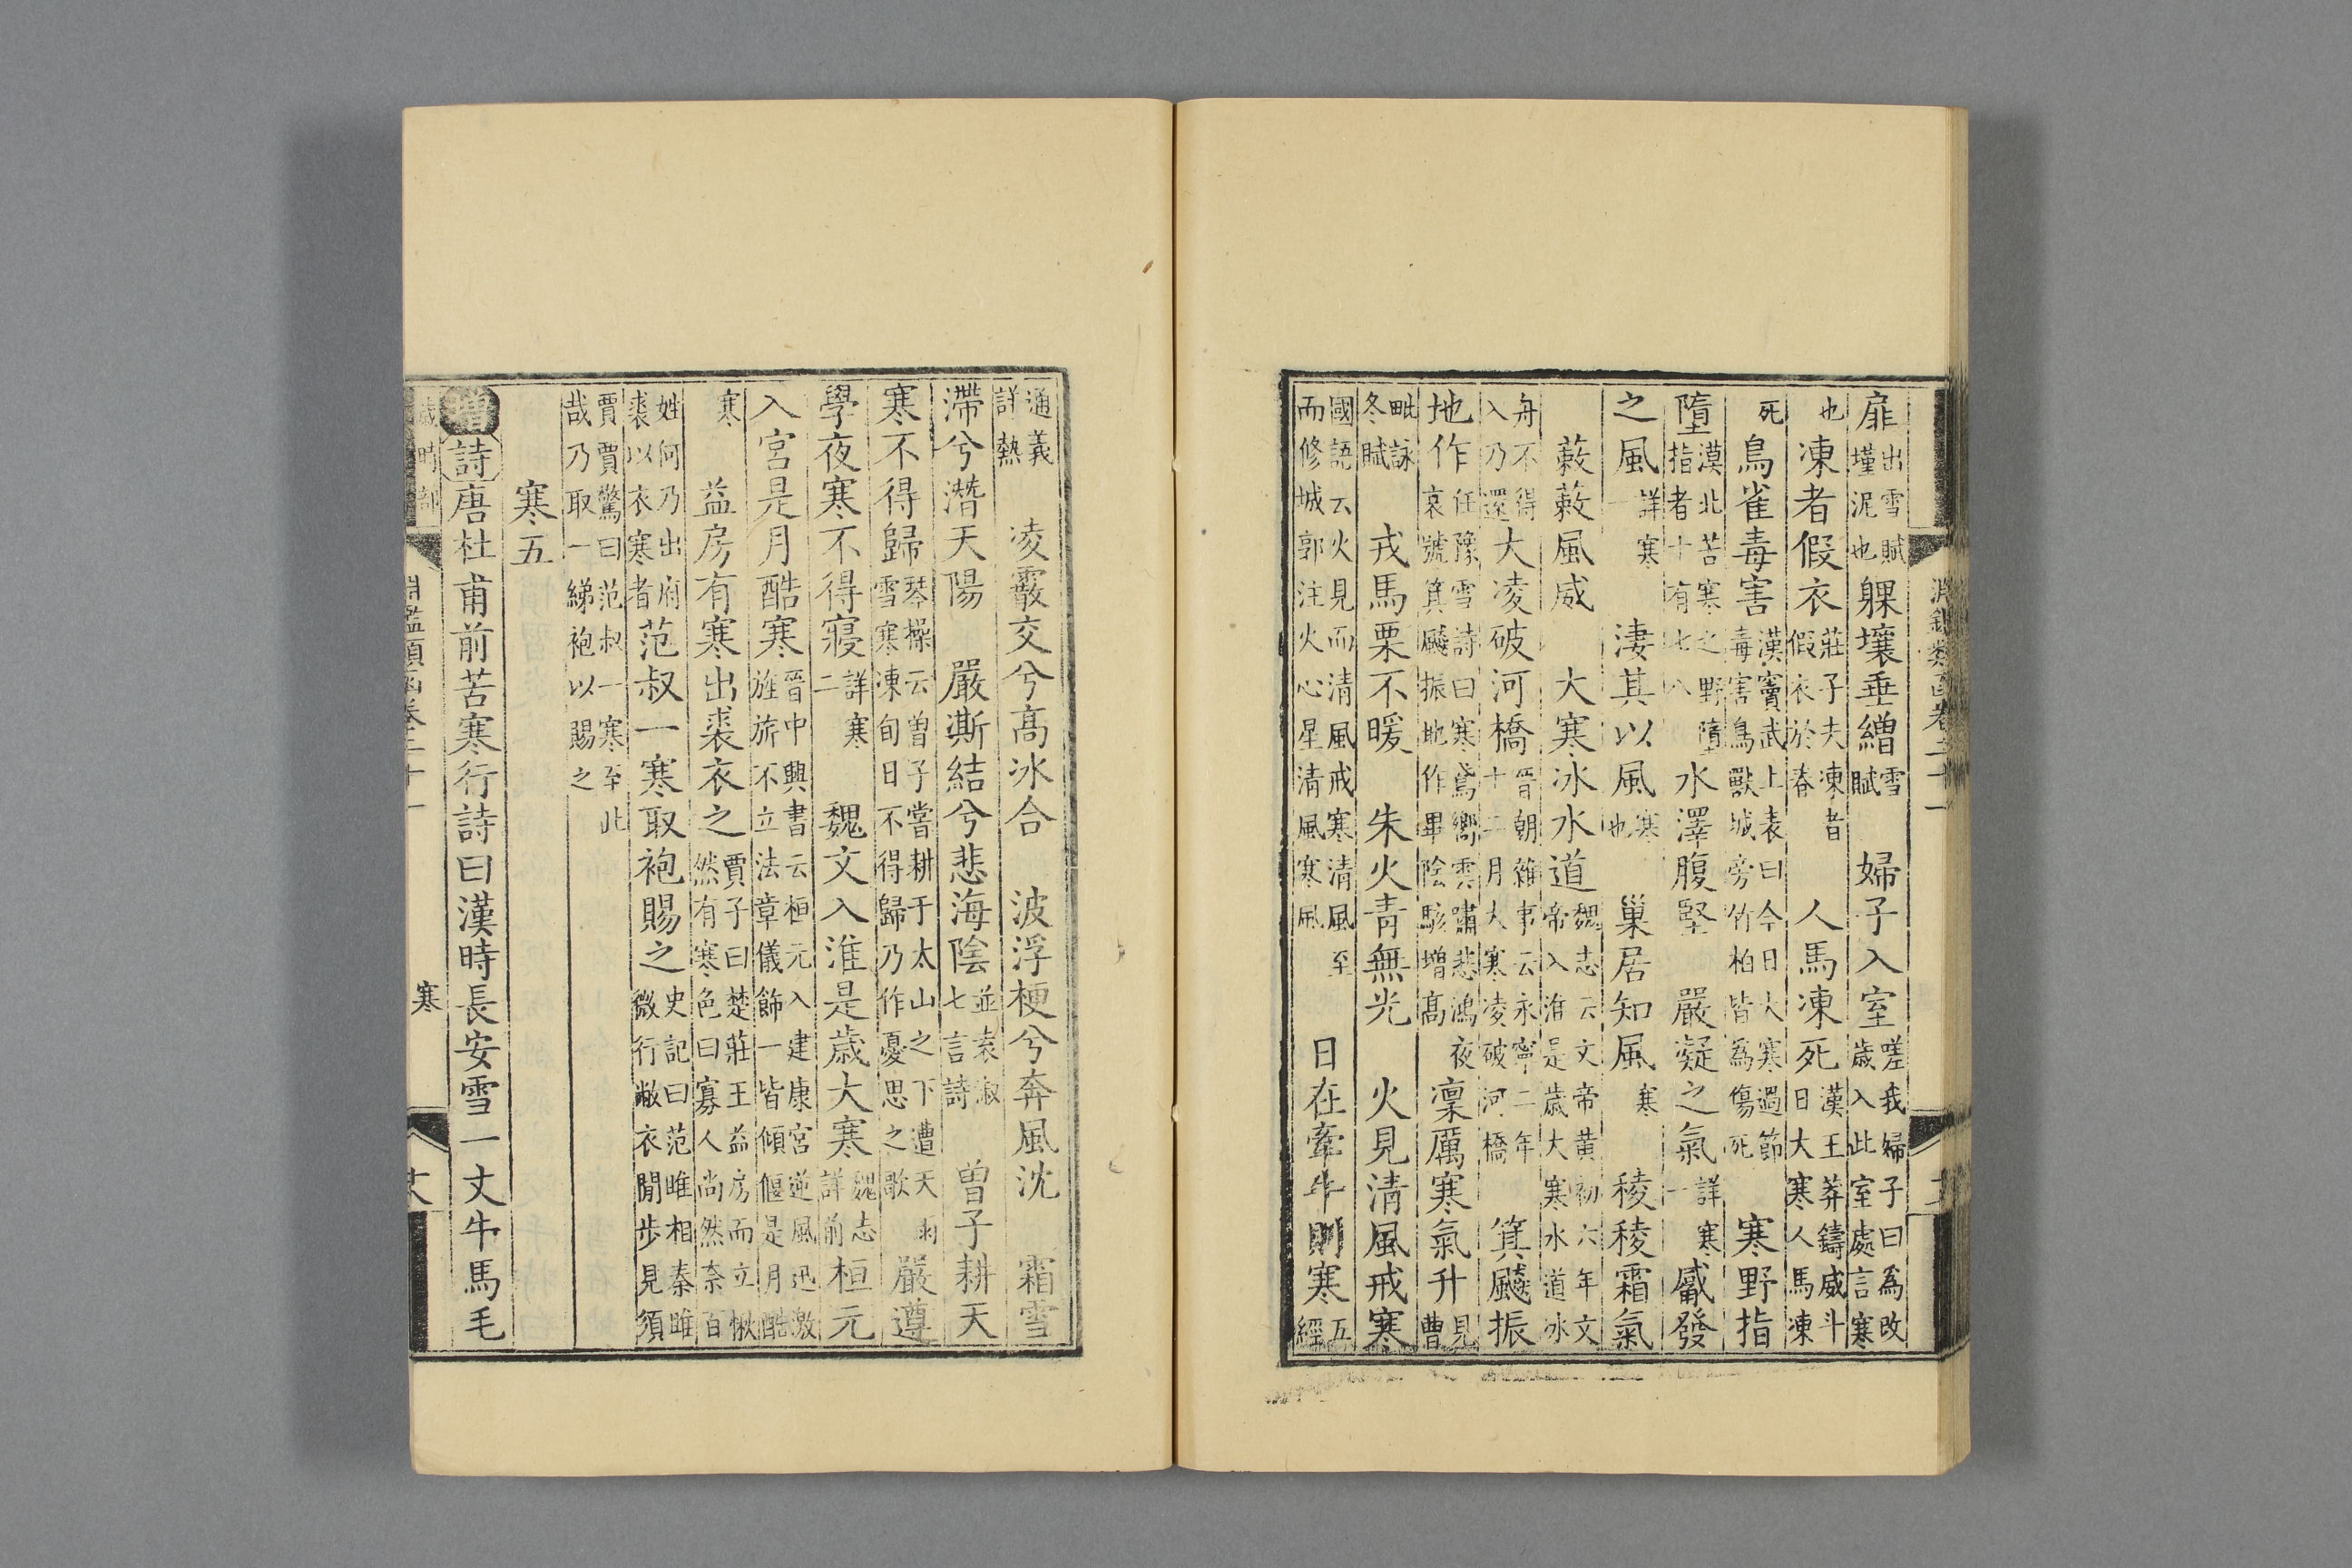 扉出雪賦墐泥也躶壤垂繒雪賦　婦子入室嗟我婦子曰為改歲入此室處言寒
也　凍者假衣莊子夫凍者假衣於春　人馬凍死漢王莽鑄威斗日大寒人馬凍
死　鳥雀毒害漢竇武上表曰今日大寒過節毒害鳥獸城旁竹柏皆為傷死　寒野指
墮漠北苦寒之野墮指者十有七八　水澤腹堅　嚴凝之氣詳寒一　觱發
之風詳寒一　淒其以風寒也　巢居知風寒　稜稜霜氣
蔌蔌風威　大寒冰水道魏志云文帝黃初六年文帝入淮是歲大寒水道冰
舟不得入乃還　大凌破河橋晉朝雜事云永寧二年十二月大寒凌破河橋　箕飈振
地作任豫雪詩曰寒鳶嚮雲嘯悲鴻夜哀號箕飈振地作畢陰駭增高　凜厲寒氣升見曹
毗詠冬賦　戎馬栗不暖　朱火青無光　火見清風戒寒
國語云火見而清風戒寒清風至而修城郭注火心星清風寒風　日在牽牛則寒五經
通義詳熱　凌霰交兮高冰合　波浮梗兮奔風沈　霜雪
滯兮潛天陽　嚴凘結兮悲海陰並袁淑七言詩　曾子耕天
寒不得歸琴操云曾子嘗耕于太山之下遭天雨雪寒凍旬日不得歸乃作憂思之歌　嚴遵
學夜寒不得寢詳寒二　魏文入淮是歲大寒魏志詳前　桓元
入宮是月酷寒晉中興書云桓元入建康宮逆風迅激旌旅不立法章儀飾一皆傾偃是月酷
寒　益房有寒出裘衣之賈子曰楚莊王益房而立愀然有寒色曰寡人尚然奈百
姓何乃出府裘以衣寒者　范叔一寒取袍賜之史記曰范雎相秦雎微行敝衣閒步見須
賈賈驚曰范叔一寒至此哉乃取一綈袍以賜之
寒五
增詩唐杜甫前苦寒行詩曰漢時長安雪一丈牛馬毛
寒